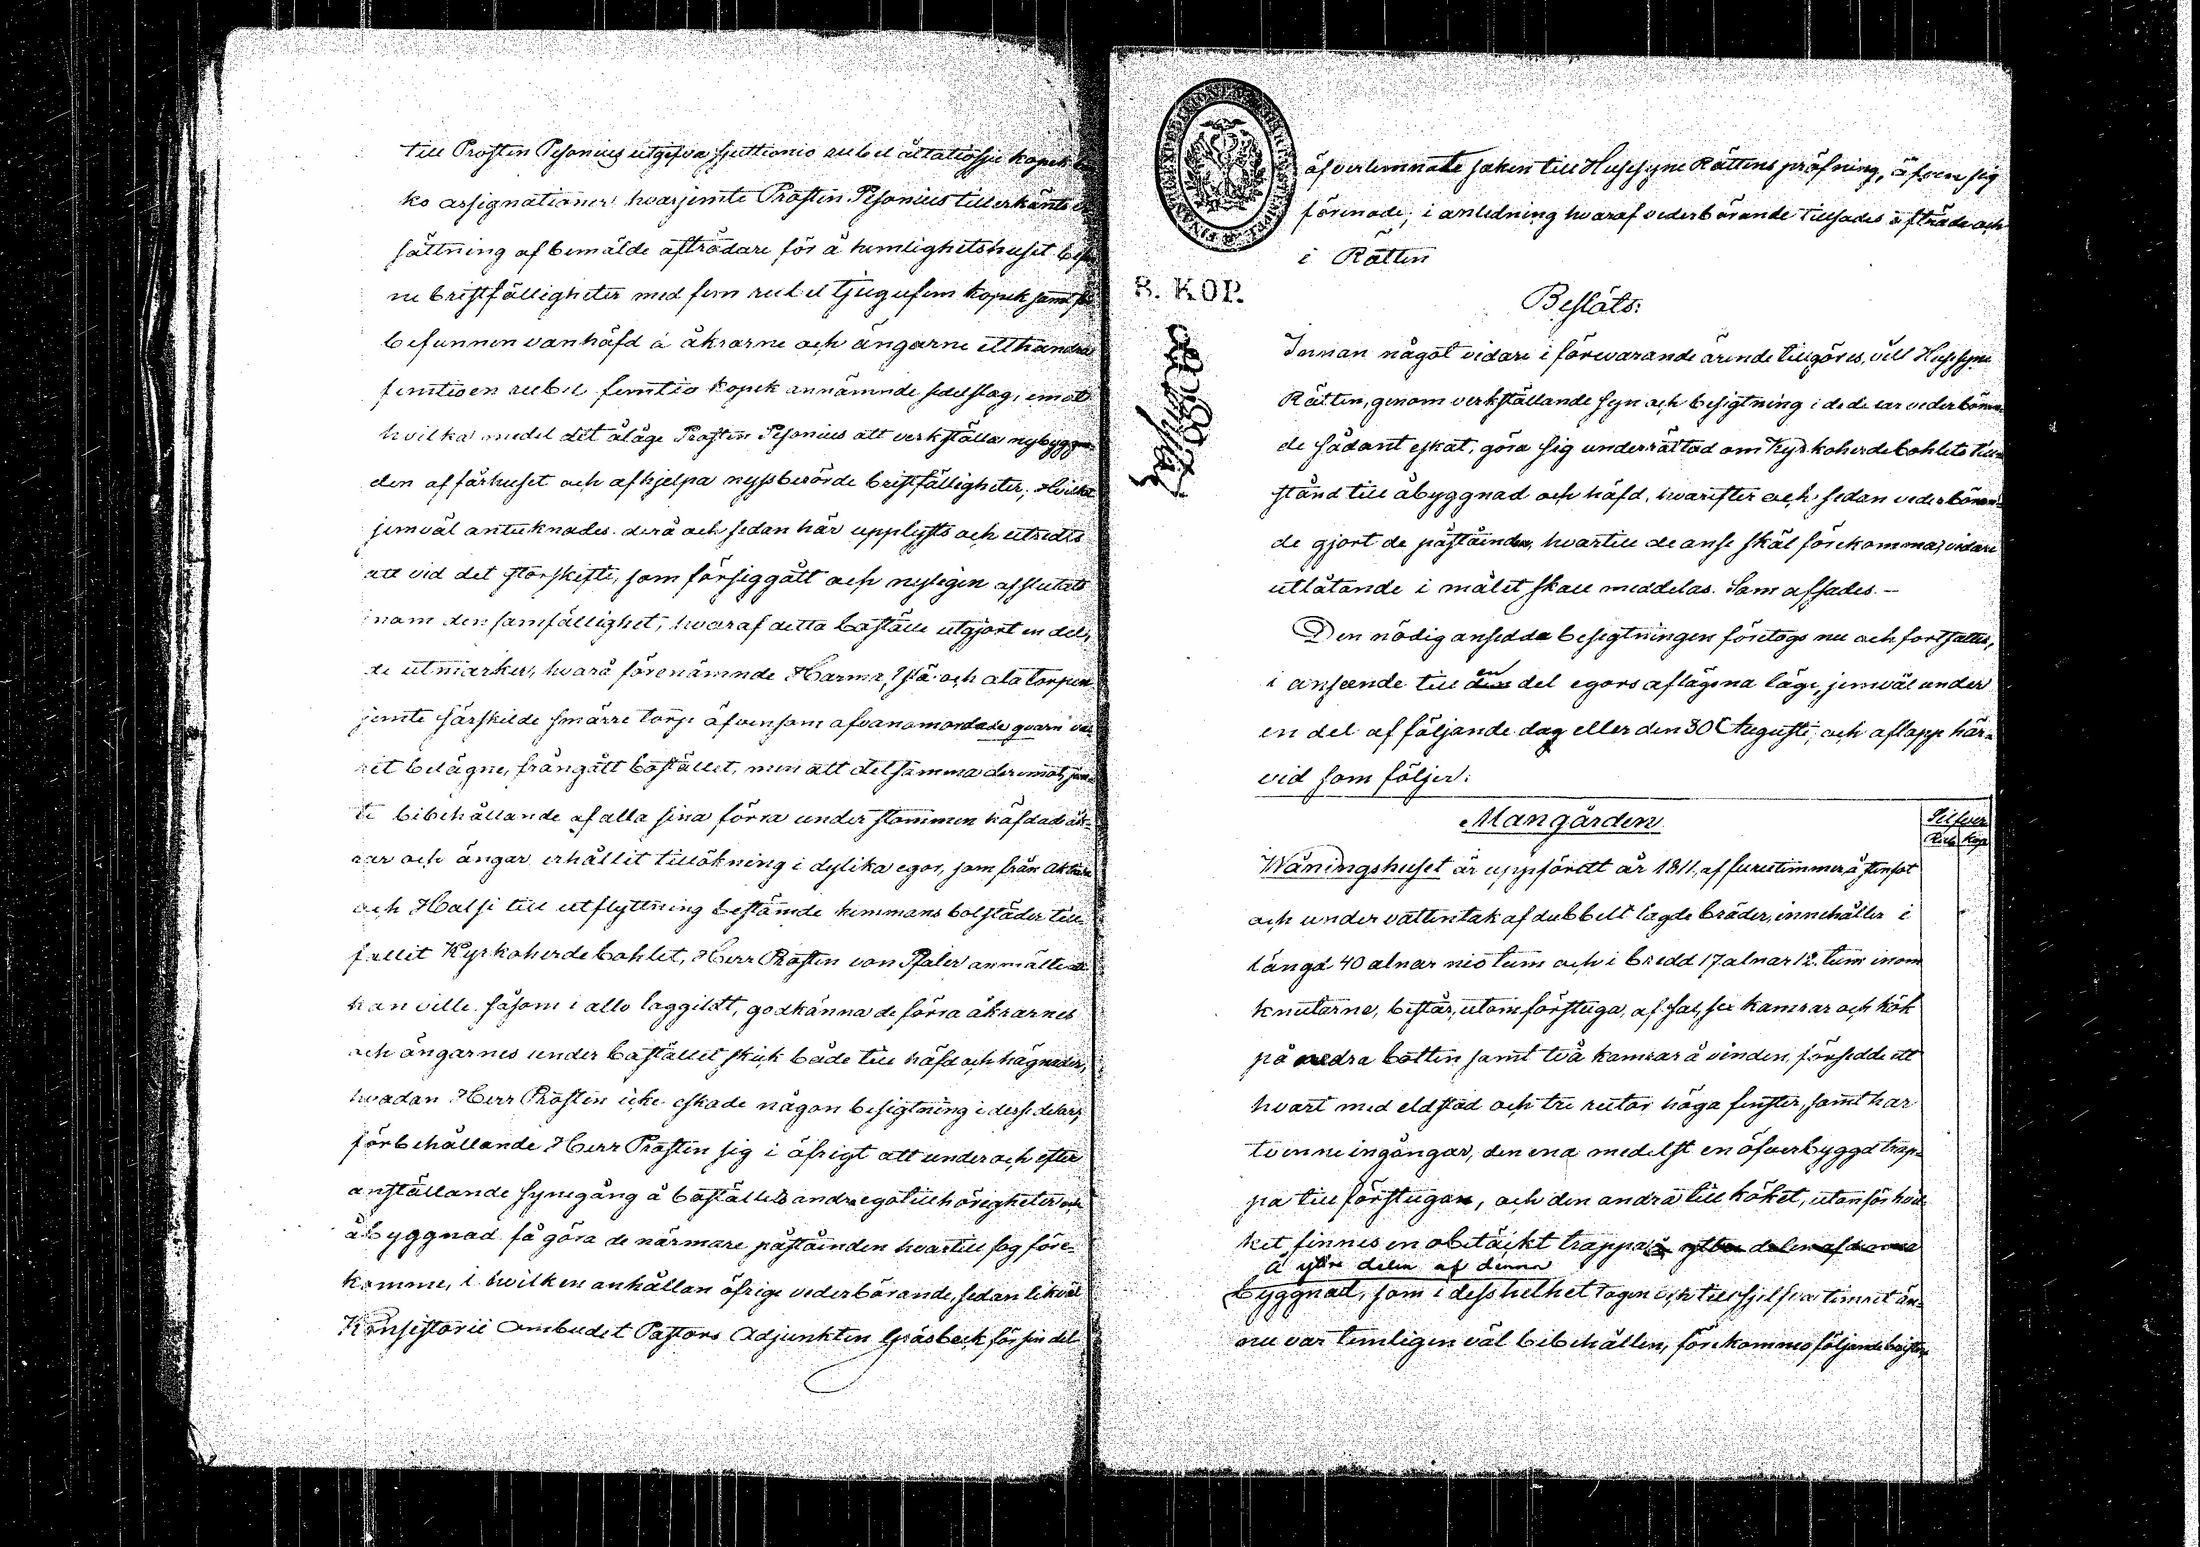 till Prosten Pesonius utgifva sjuttionio rubel åttatiosju kopek
ko assignationer, hvarjemte Prosten Pesonius tillerkänts
sättning af bemälde afträdare för å hemlighetshuset
ne bristfälligheter med fem rubel tjugufem kopek samt för
befunnen vanhäfd å åkrarne och ängarne etthundra
femtioen rubel femtio kopek annämnde sedelslag, emot
hvilka medel det ålåge Prosten Pesonius att verkställa nybyggna
den af fårhuset och afhjelpa nyssberörde bristfälligheter; Hvilka
jemväl antecknades derå och sedan här upplysts och utredts
att vid det storskifte, som försiggått och nyligen afslutats
inom den samfällighet, hvaraf detta boställe utgjort en del,
de utmarker, hvarå förenämnde Harma, och ala torpen
jemte särskilde smärre torp äfvensom afvanomordade qvarn va
rit belägne, frångått bostället, men att detsamma deremot, jem
te bibehållande af alla sina förra under stommen häfdade åk-
rar och ängar erhållit tillökning i dylika egor, som från
och Halsi till utflyttning bestämde hemmans bolstäder till
fallit Kyrkoherdebohlet, Herr Prosten von Pfaler anmälte att
han ville såsom i allo laggildt, godkänna de förra åkrarnes
och ängarnes under bostället skick både till häfd och hägnader,
hvadan Herr Prosten icke eskade någon besigtning i desse delar,
förbehållande Herr Prosten sig i öfrigt att under och efter
anställande synegång å boställets andra egotillhörigheter och
åbyggnad få göra de närmare påståenden hvartill sog före-
komme, i hvilken anhållan öfrige vederbörande, sedan likväl
Konsistorii ombudet Pastors Adjunkten Gräsbeck för sin del
öfverlemnate saken till Husesyne Rättens pröfning, äfven sig
förenade; i anledning hvaraf vederbörande tillsades afträde och
i Rätten
8. KOP.
Beslöts:
Innan något vidare i förevarande ärende tillgöres, vill Husesyne
Rätten, genom verkställande syn och besigtning i de delar vederböran-
de sådant eskat, göra sig underrättad om Kyrkoherdebohlets till-
stånd till åbyggnad och häfd, hvarefter och sedan vederböran-
de gjort de påståenden, hvartill de anse skäl förekomma, vidare
utlåtande i målet skall meddelas. Som afsades. —
Den nödig ansedda besigtningen företogs nu och fortsattes,
i anseende till en del egors aflägsna läge, jemväl under
en del af följande dag eller den 30 Augusti, och aflopp här-
vid som följer:
Mangården
Silfver
Rub Kop
Wåningshuset är uppfördt år 1811, af furutimmer å stenfot
och under vattentak af dubbelt lagde bräder, innehåller i
längd 40 alnar nio tum och i bredd 17 alnar 12 tum inom
knutarne, består, utom förstuga, af sal, sex kamrar och kök
på nedra botten samt två kamrar å vinden, försedde ett
hvart med eldstad och tre rutor höga fenster, samt har
tvenne ingångar, den ena medelst en öfverbyggd trap-
pa till förstugan, och den andra till köket, utanför hvil-
ket finnes en obetäckt trappa å yttre delen af denna
å yttre delen af denna
byggnad, som i dess helhet tagen och till sjelfva timret än-
nu var temligen väl bibehållen, förekommo följande brister